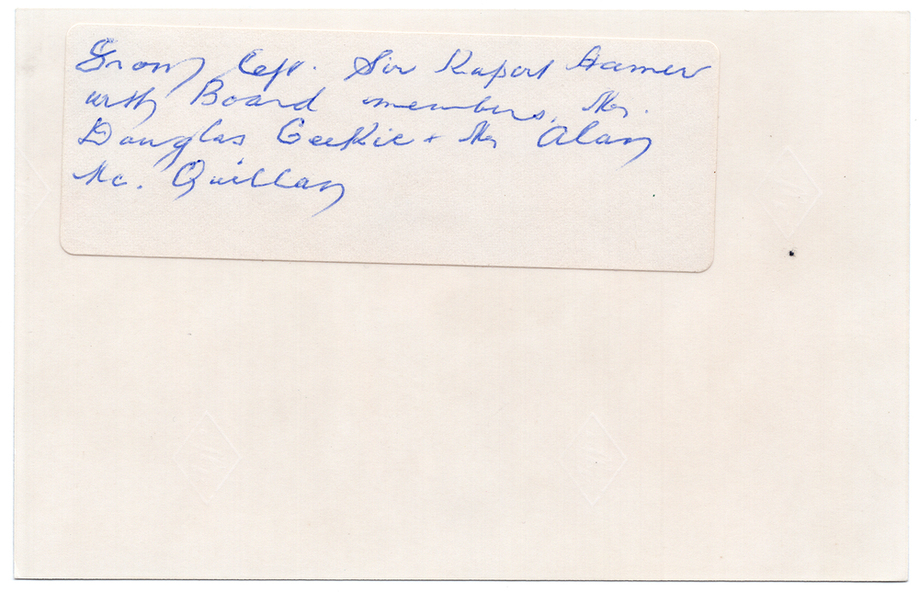 From Left. Sir Rupert Hamer
with Board members, Mr.
Douglas Geekie + Mr Alan
Mc. Quillan